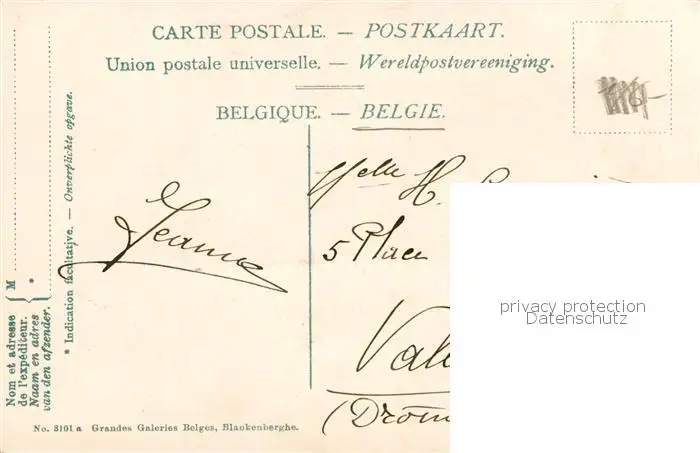 CARTE POSTALE. — POSTKAART.
Union postale universelle. — Wereldpostvereeniging.
BELGIQUE. — BELGIE.
Jeanne
Melle H.
5 Place
Val
(Drôm
privacy protection
Datenschutz
* Indication facultative. — Onverplichte opgave.
M *
Nom et adresse
de l'expéditeur.
Naam en adres
van den afzender.
No. 3101 a Grandes Galeries Belges, Blankenberghe.